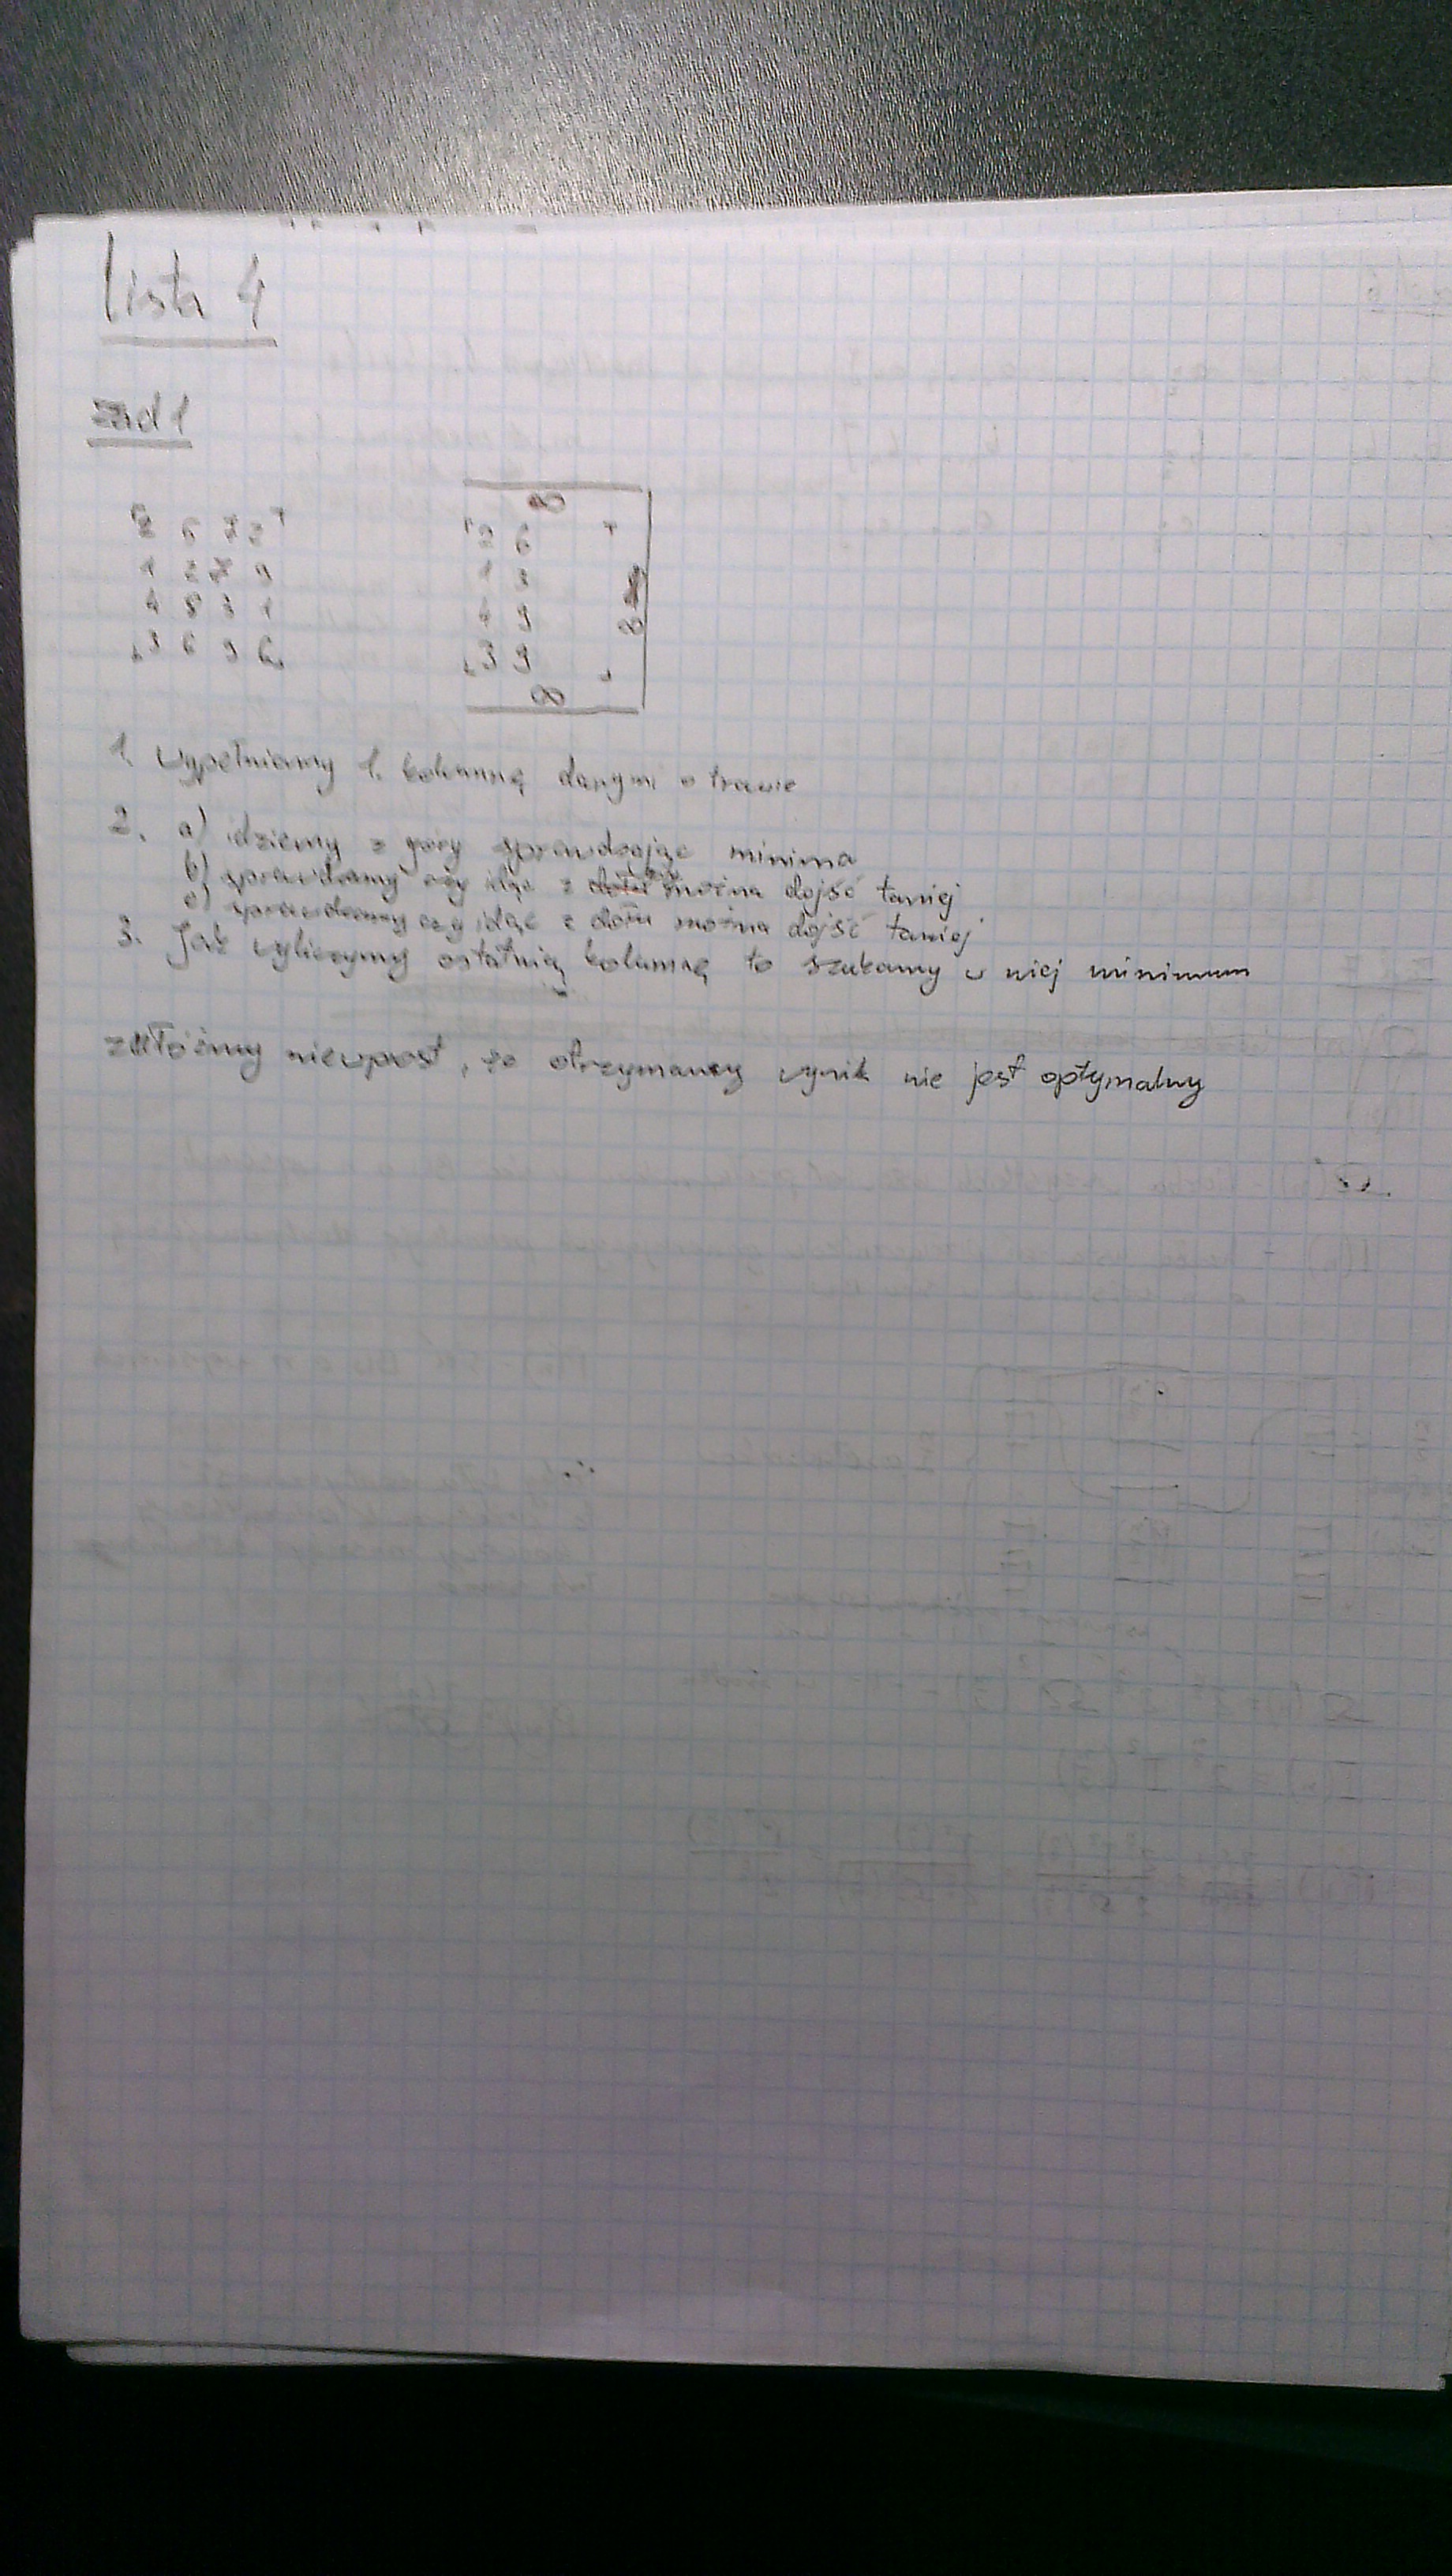 lista 4
zad 1
2 6 7 2
1 2 7 9
4 5 3 1
3 6 9 6
∞
2 6
1 3
4 9
∞
3 9
∞
1. wypełniamy 1. kolumnę danymi o trawie
2. a) idziemy z góry sprawdzając minima
b) sprawdzamy czy idąc z można dojść taniej
c) sprawdzamy czy idąc z dołu można dojść taniej
3. Jak wyliczymy ostatnią kolumnę to szukamy w niej minimum
załóżmy niewprost, że otrzymany wynik nie jest optymalny